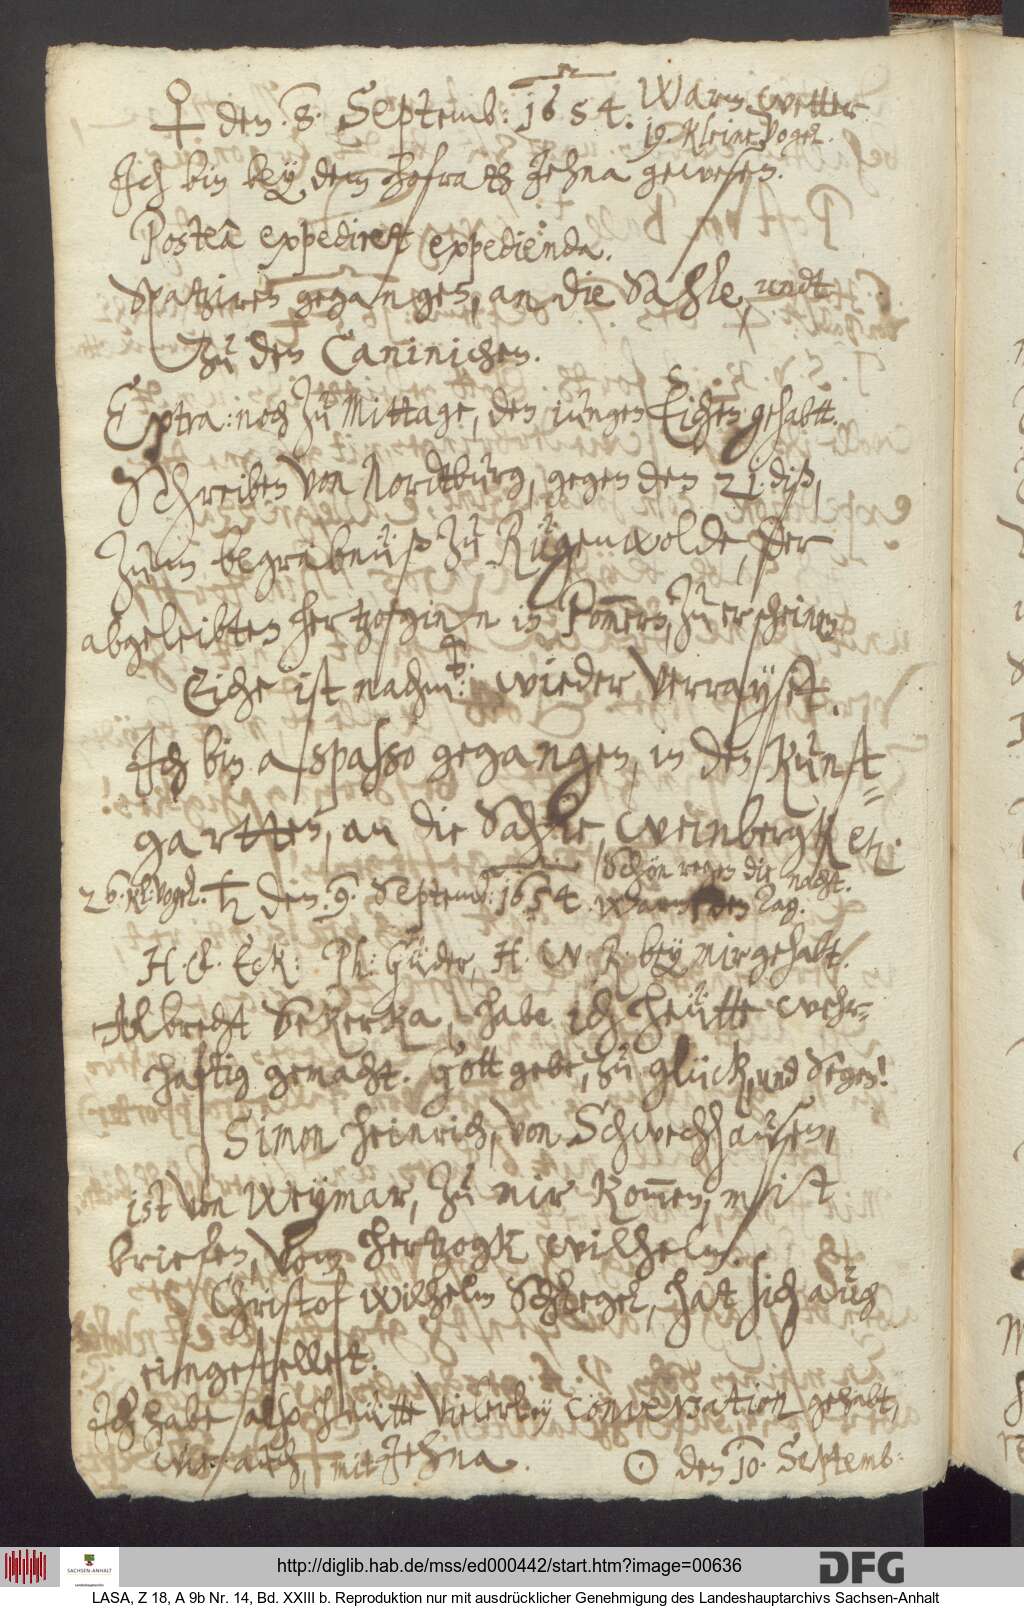 ♀ den: 8. Septemb: 1654. Warm wetter
19. kleine Vogel.
Ich bin bey dem Hofrath Jehna gewesen.
Posteà expedirt expedienda.
Spatziren gegangen, an die Sahle, undt
zu den Caninichen.
Extra: noch zu Mittage, den jungen Eichen gehabtt.
Schreiben von Nordtburg, gegen den 21. diß,
Zum begräbnüß zu Rügenwolde, der
abgeleibten hertzogin in Pom̄ern, zu erscheinen
Eiche ist nachm: wieder verrayset.
Ich bin à spasso gegangen, in den Kunst-
gartten, an die Sahle, Weinbergk etc.
Schön regen die nacht.
26. kl: Vogel. ♄ den: 9. Septemb: 1654. warm den Tag.
H. C. Eck: Ph: Güder, H. W. R. bey mir gehabt.
Albrecht Sekerka, habe ich heütte wehr-
haftig gemacht. Gott gebe, zu glück, und Segen!
Simon Heinrich, von Schwechhausen,
ist von Weymar, zu mir kom̄en, mit
briefen, vom hertzogk Wilhelm.
Christof Wilhelm Schlegel, hat sich auch
eingestellet.
Ich habe also heütte vielerley conversation gehabt,
wie auch, mit Jehna. ☉ den 10. Septemb:
http://diglib.hab.de/mss/ed000442/start.htm?image=00636
SACHSEN-ANHALT
DFG
LASA, Z 18, A 9b Nr. 14, Bd. XXIII b. Reproduktion nur mit ausdrücklicher Genehmigung des Landeshauptarchivs Sachsen-Anhalt